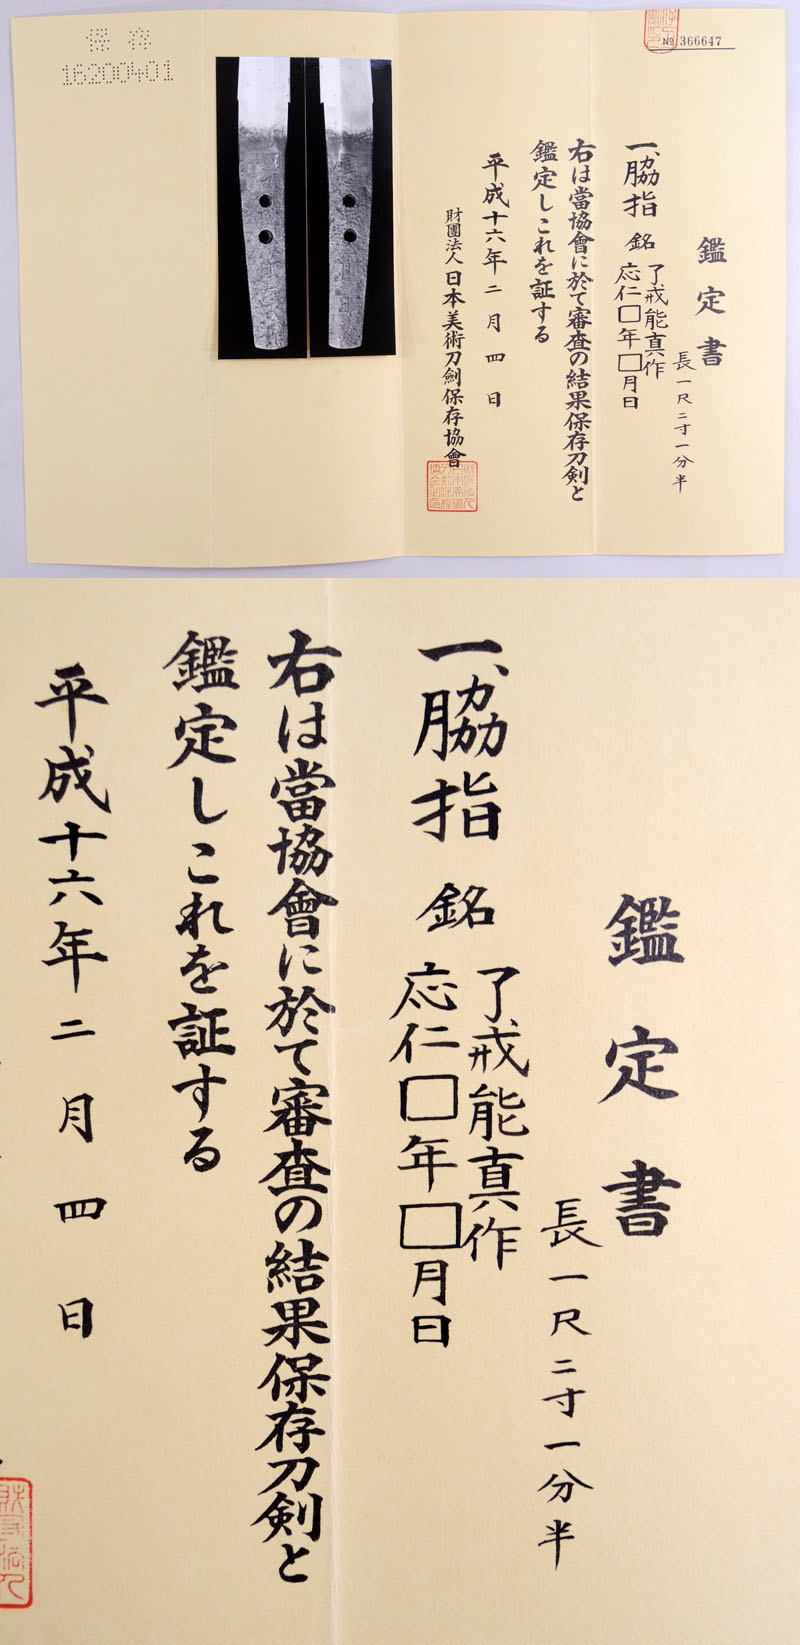 保存
16200401
№ 366647
鑑定書
長一尺二寸一分半
一、脇指 銘 了戒能真作
応仁□年□月日
右は當協會に於て審査の結果保存刀剣と
鑑定しこれを証する
平成十六年二月四日
財團法人日本美術刀劍保存協會
鑑定書
長一尺二寸一分半
一、脇指 銘 了戒能真作
応仁□年□月日
右は當協會に於て審査の結果保存刀剣と
鑑定しこれを証する
平成十六年二月四日